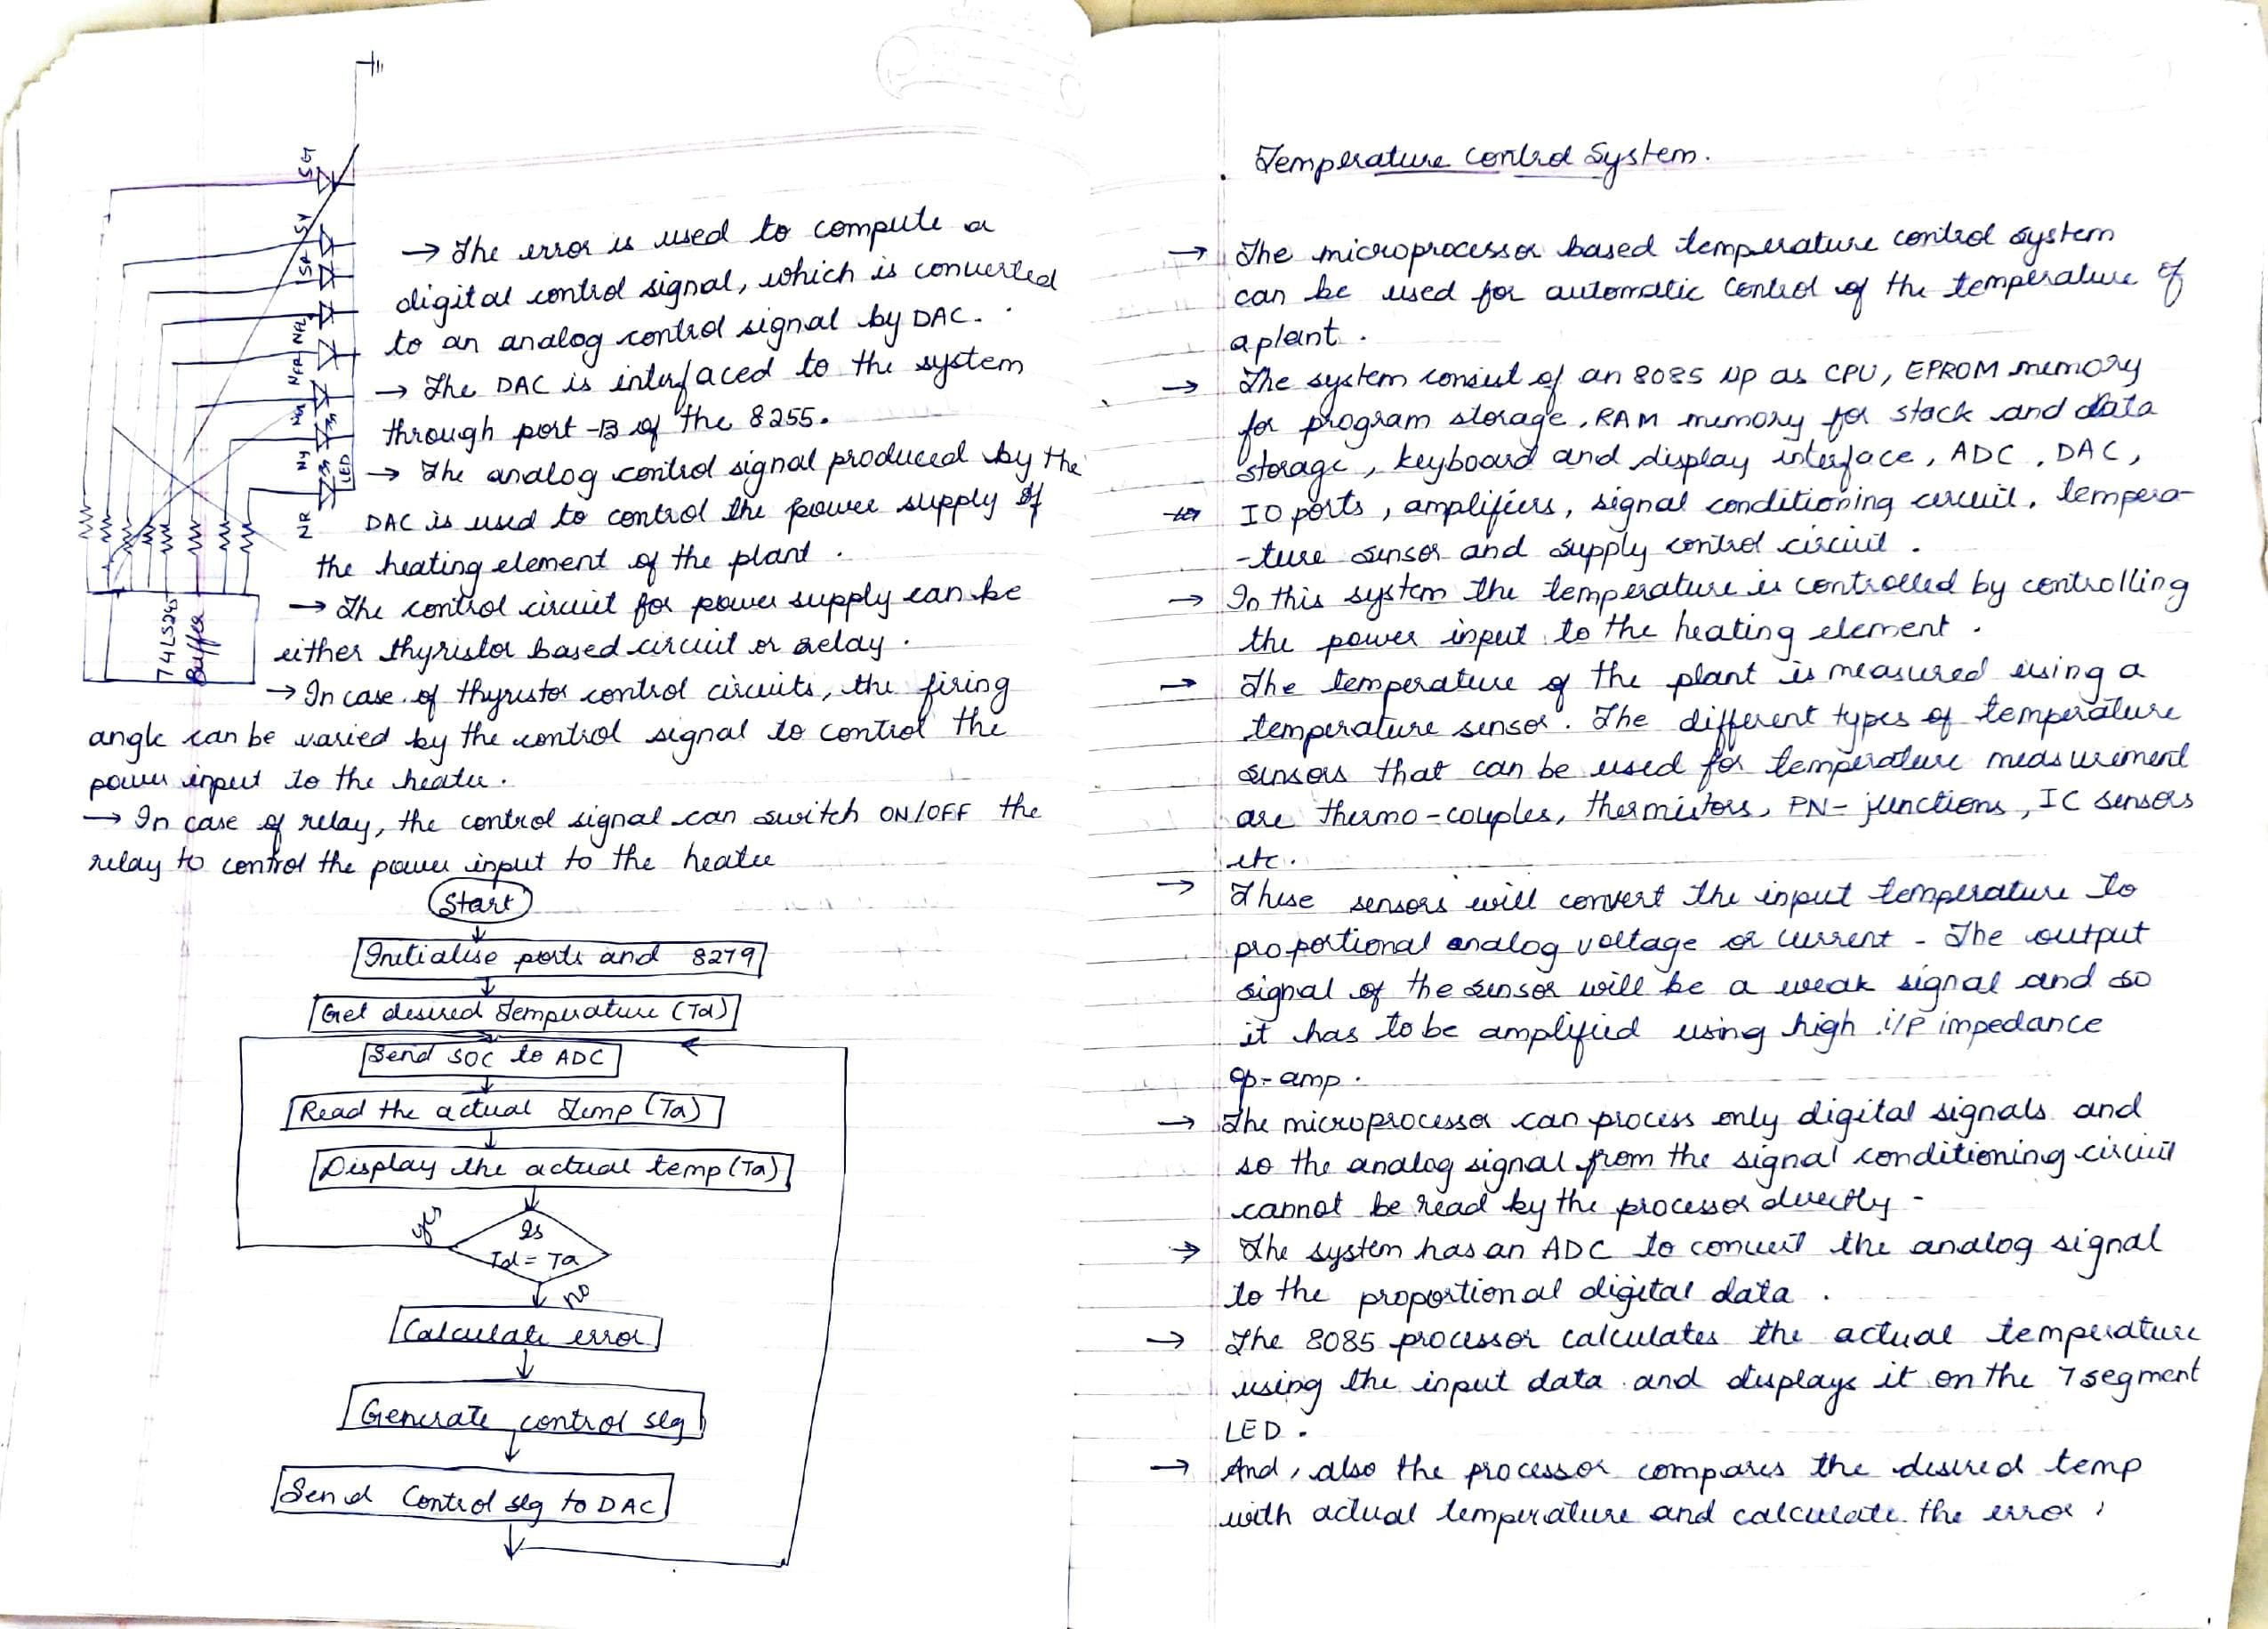 SG
SY
SR
NFL
NFR
NY
LED
NR
74LS245
Buffer
→ The error is used to compute a
digital control signal, which is converted
to an analog control signal by DAC.
→ The DAC is interfaced to the system
through port-B of the 8255.
→ The analog control signal produced by the
DAC is used to control the power supply of
the heating element of the plant.
→ The control circuit for power supply can be
either thyristor based circuit or relay.
→ In case of thyristor control circuits, the firing
angle can be varied by the control signal to control the
power input to the heater.
→ In case of relay, the control signal can switch ON/OFF the
relay to control the power input to the heater
Start
Initialise ports and 8279
Get desired Temperature (Td)
Send SOC to ADC
Read the actual Temp (Ta)
Display the actual temp (Ta)
yes
Is
Td = Ta
no
Calculate error
Generate control sig
Send Control sig to DAC
Temperature Control System.
→ The microprocessor based temperature control system
can be used for automatic control of the temperature of
a plant.
→ The system consist of an 8085 μp as CPU, EPROM memory
for program storage, RAM memory for stack and data
storage, keyboard and display interface, ADC, DAC,
IO ports, amplifiers, signal conditioning circuit, tempera-
-ture sensor and supply control circuit.
→ In this system the temperature is controlled by controlling
the power input to the heating element.
→ The temperature of the plant is measured using a
temperature sensor. The different types of temperature
sensors that can be used for temperature measurement
are thermo-couples, thermistors, PN-junctions, IC sensors
etc.
→ These sensors will convert the input temperature to
proportional analog voltage or current. The output
signal of the sensor will be a weak signal and so
it has to be amplified using high i/p impedance
op-amp.
→ The microprocessor can process only digital signals and
so the analog signal from the signal conditioning circuit
cannot be read by the processor directly.
→ The system has an ADC to convert the analog signal
to the proportional digital data.
→ The 8085 processor calculates the actual temperature
using the input data and displays it on the 7 segment
LED.
→ And, also the processor compares the desired temp
with actual temperature and calculate the error,